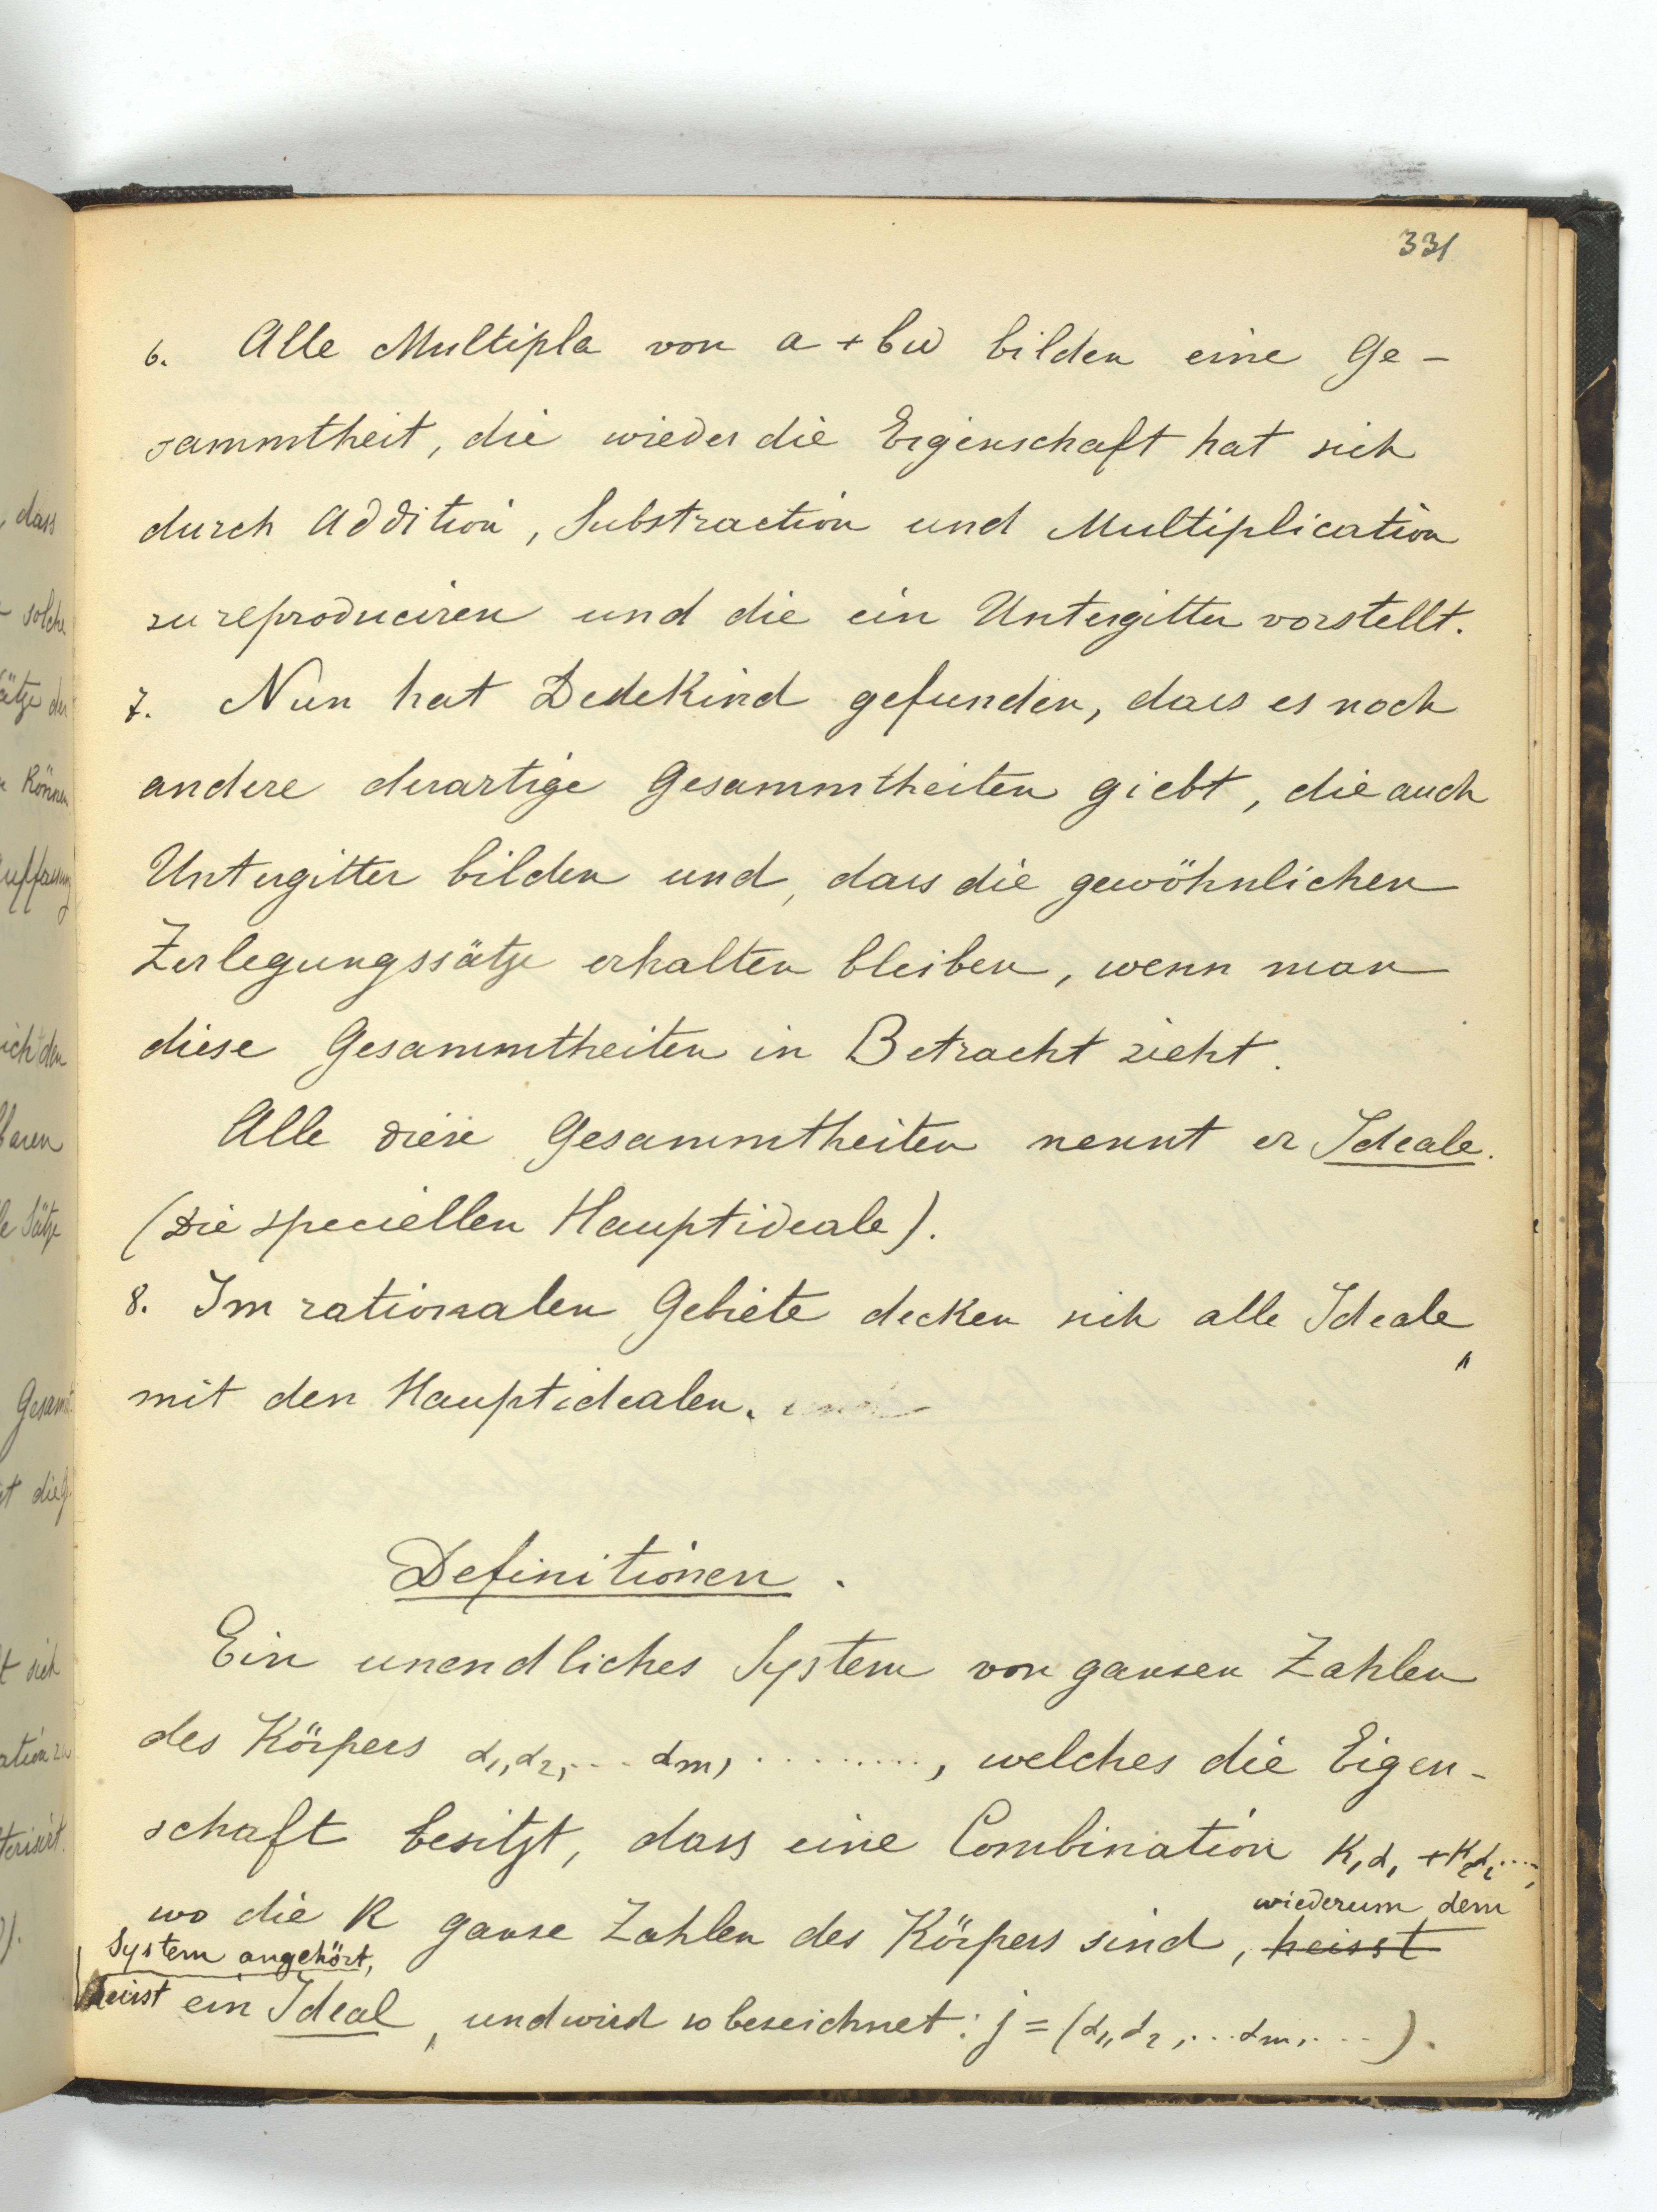 331
6. Alle Multipla von a + bω bilden eine Ge-
sammtheit, die wieder die Eigenschaft hat sich
durch Addition, Substraction und Multiplication
zu reproduciren und die ein Untergitter vorstellt.
7. Nun hat Dedekind gefunden, dass es noch
andere derartige Gesammtheiten giebt, die auch
Untergitter bilden und, dass die gewöhnlichen
Zerlegungssätze erhalten bleiben, wenn man
diese Gesammtheiten in Betracht zieht.
Alle diese Gesammtheiten nennt er Ideale.
(Die speciellen Hauptideale).
8. Im rationalen Gebiete decken sich alle Ideale
mit den Hauptidealen.
Definitionen.
Ein unendliches System von ganzen Zahlen
des Körpers α₁, α₂, ... αm, ........., welches die Eigen-
schaft besitzt, dass eine Combination K₁α₁ + K₂α₂....,
wo die K ganze Zahlen des Körpers sind, heisst wiederum dem
System angehört,
heisst ein Ideal, und wird so bezeichnet: j = (α₁, α₂, ... αm, ...).
dass
solche
Sätze der
Können
ich den
Sätze
Gesamt